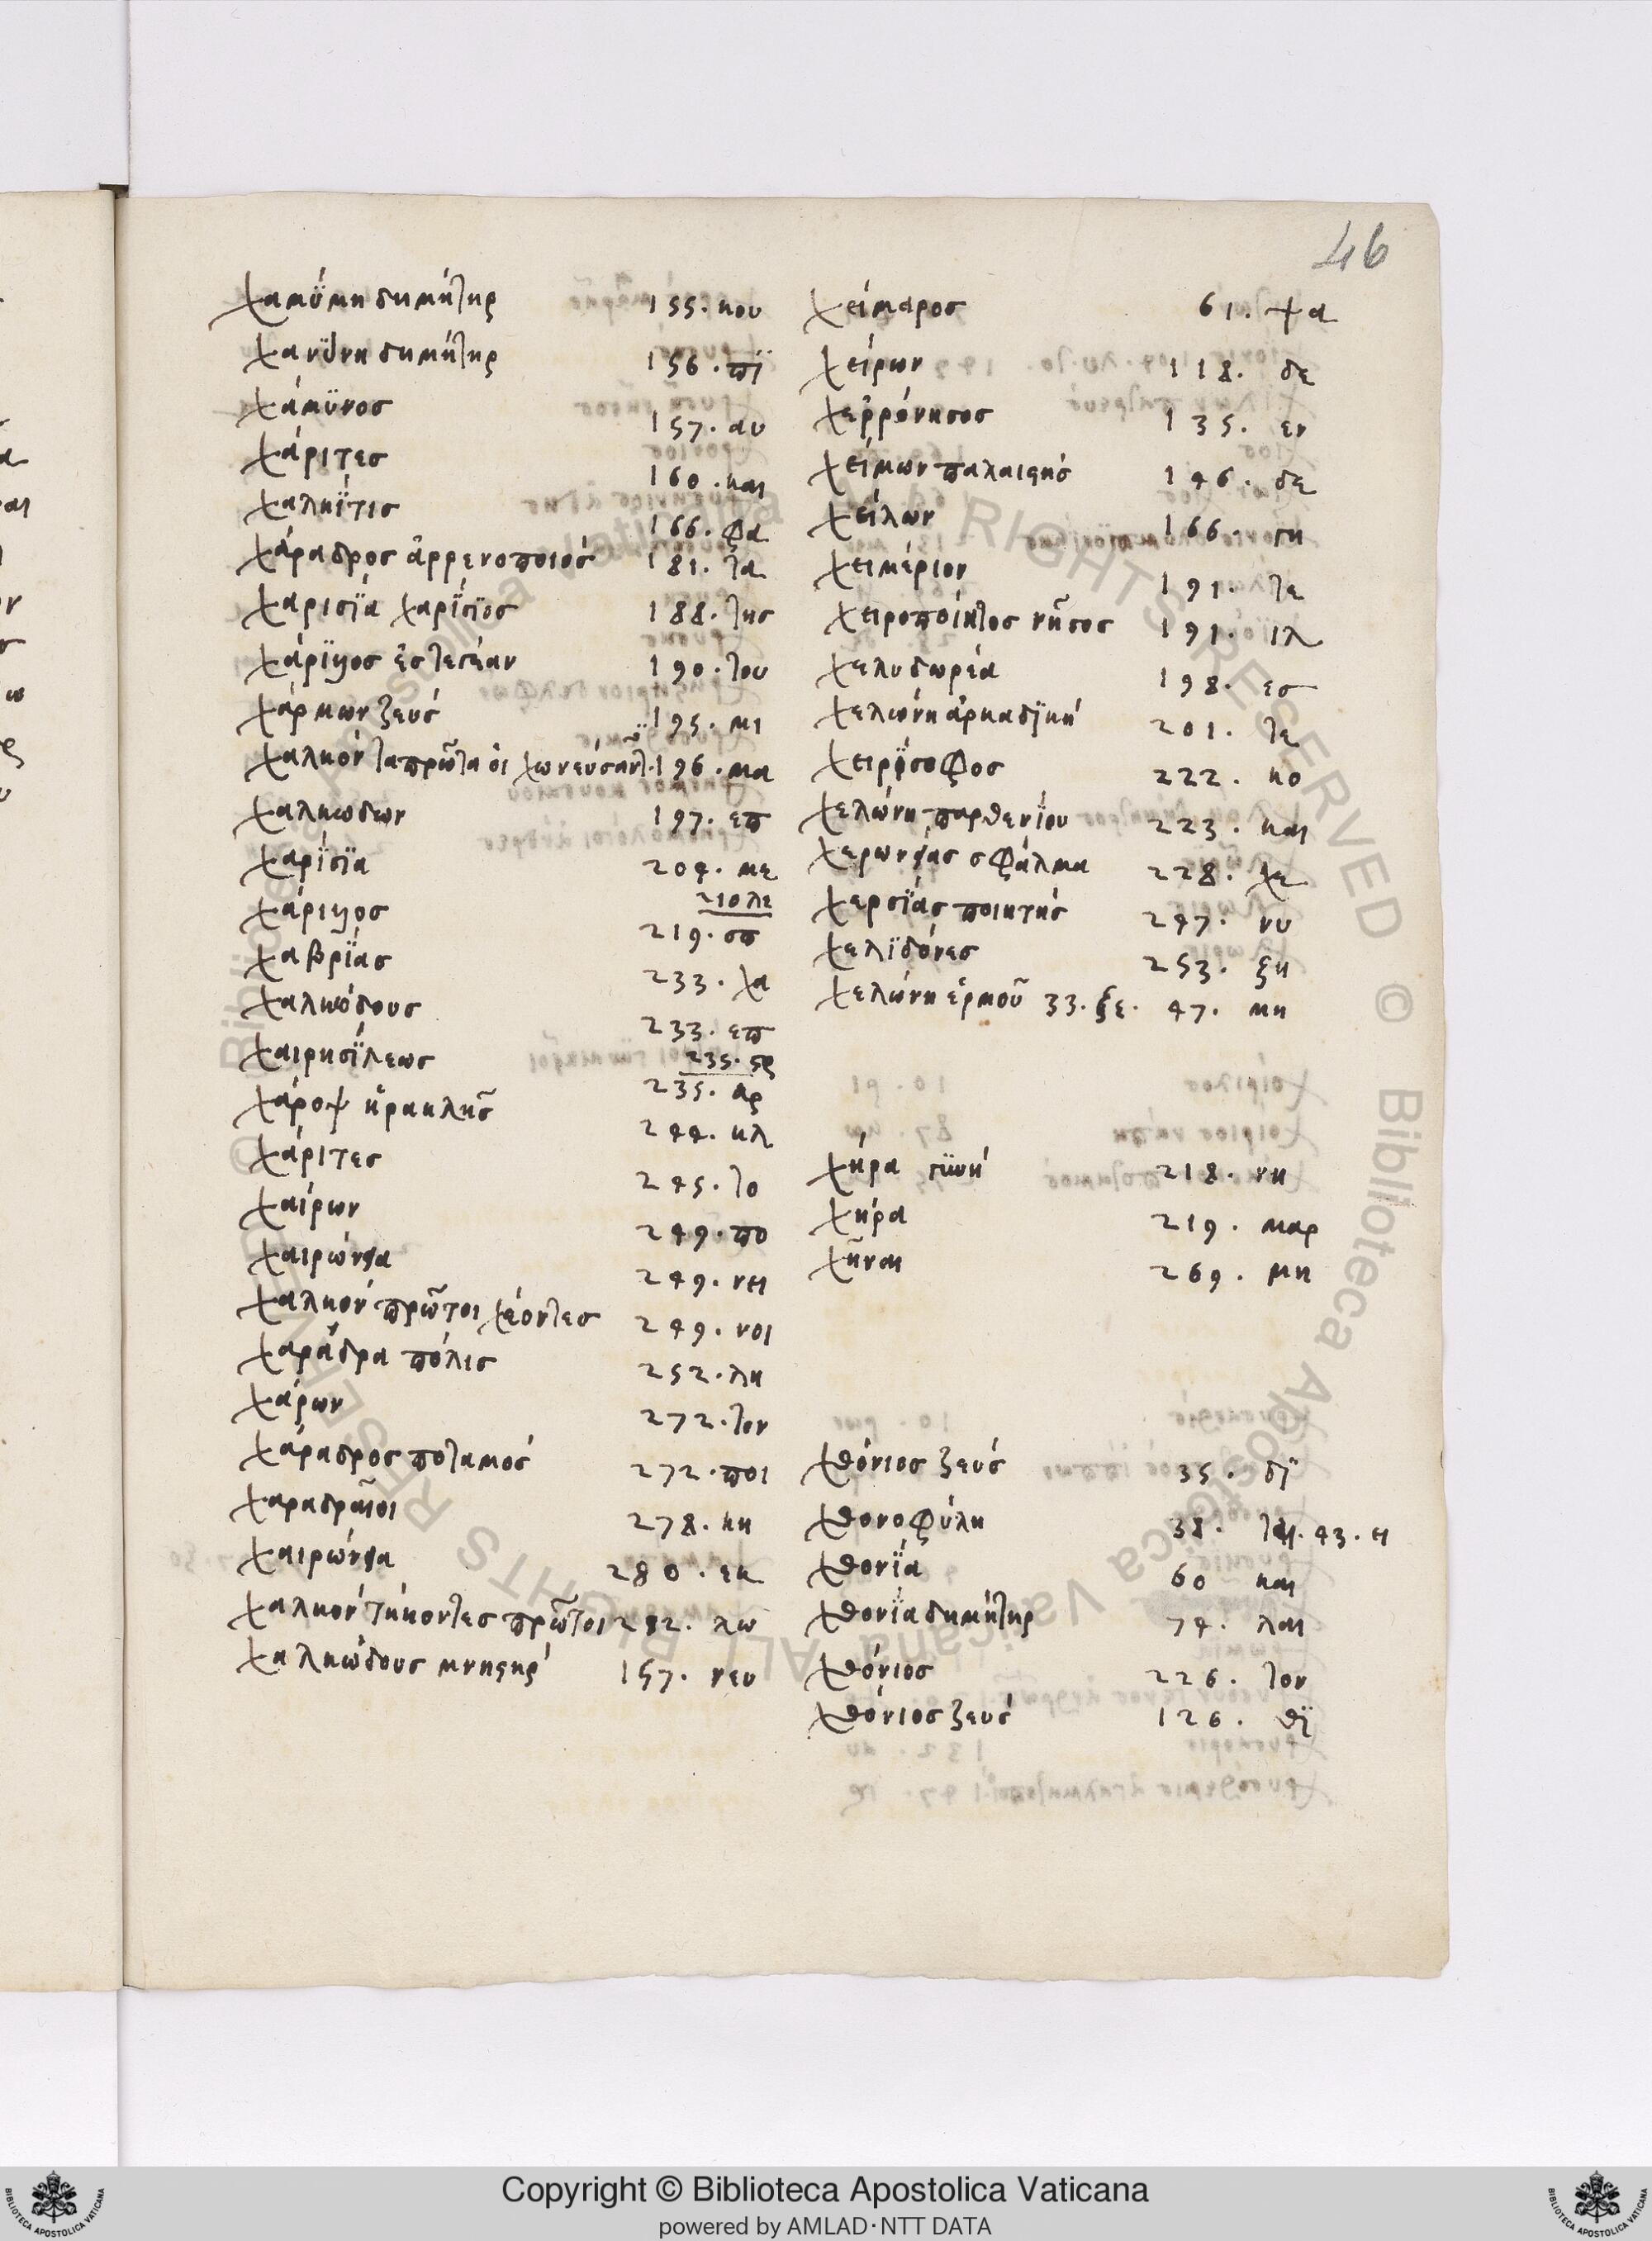 46
χαμύνη δημήτηρ 155. κου
χαμύνη δημήτηρ 156. πϊ
χάμϋνος 157. αυ
χάριτες 160. και
χαλκϊτις 166. φα
χάραδρος ἀρρενοποιός 181. τα
χαρισϊα χαρίσϊος 188. της
χάρϊμος 190. του
χάρμων ζεύς 195. κι
χαλκόν τα πρῶτα οἱ χωνεύσαντ. 196. μα
χαλκωδων 197. επ
χαρϊσϊα 204. με
210 λε
χάριμος 219. σπ
χαβρϊας 233. χα
χαλκώδους 233. επ
χαιρησϊλεως 235. ςρ
235. αρ
χάροψ ἡρακλῆς 244. κλ
χάριτες 245. το
χαίρων 249. πο
χαιρώνεια 249. νει
χαλκόν πρῶτοι χέοντες 249. νοι
χαράδρα πόλις 252. λη
χάρων 272. τον
χάραδρος ποταμός 272. ποι
χαραδραῖοι 278. κη
χαιρώνεια 280. εκ
χαλκόν τήκοντες πρῶτοι 282. λω
χαλκώδους μνηστηρ 157. νευ
χείμαρος 61. ψα
χείρων 118. δε
χερρόνησος 135. εν
χείμων παλαιστής 146. δε
χείλων 166. στη
χειμέριον 191. τε
χειροποίητος νῆσος 191. ιλ
χελυδωρέα 198. εσ
χελώνη ἀρκαδϊκή 201. τε
χειρϊσοφος 222. κο
χελώνη παρθενϊου 223. και
χερωνείας σφάλμα 228. χε
χερσϊας ποιητής 247. νυ
χελϊδόνες 253. ξη
χελώνη ἑρμοῦ 33. ξε. 47. μη
χήρα 218. νη
χήρα 219. μαρ
χῆναι 269. μη
χθόνιος ζεύς 35. δϊ
χθονοφύλη 38. ται. 43. ει
χθονϊα 60 και
χθονϊα δημήτηρ 74. λαι
χθόνιος 226. τον
χθόνιος ζεύς 126. θϊ
Copyright © Biblioteca Apostolica Vaticana
powered by AMLAD·NTT DATA